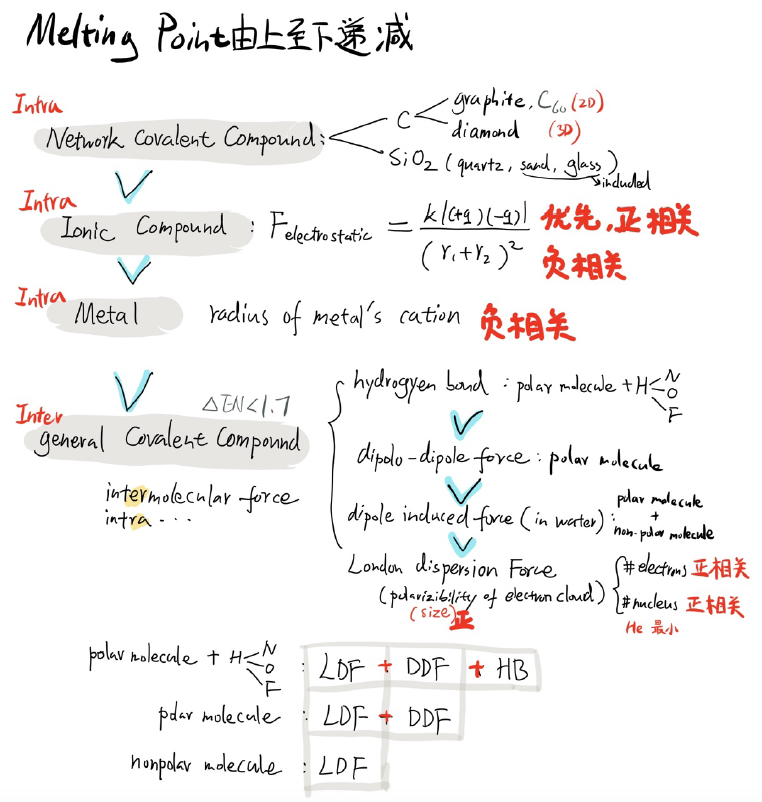 Melting Point由上至下递减
Intra
Network Covalent Compound:
C
graphite, C60 (2D)
diamond (3D)
SiO2 (quartz, sand, glass)
included
Intra
Ionic Compound : Felectrostatic = k|(+q)(-q)| / (r1+r2)2
优先,正相关
负相关
Intra
Metal radius of metal's cation 负相关
Inter
ΔEN<1.7
general Covalent Compound
intermolecular force
intra ...
hydrogyen bond : polar molecule + H N O F
dipolo-dipole force : polar molecule
dipole induced force (in water) : polar molecule + non-polar molecule
London dispersion Force
(polarizibility of electron cloud)
(size)正
#electrons 正相关
#nucleus 正相关
He 最小
polar molecule + H N O F : LDF + DDF + HB
polar molecule : LDF + DDF
nonpolar molecule : LDF